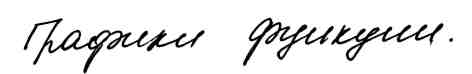 Графики функции.